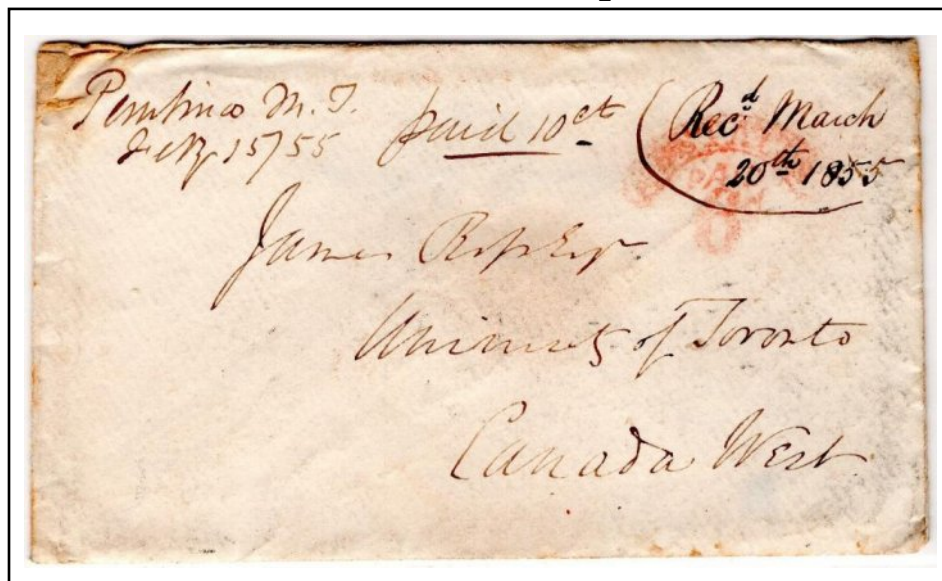 Pembina M.T.
Feby 15/55
paid 10ct
Recd March
20th 1855
PAID
James Ross Esqr.
University of Toronto
Canada West